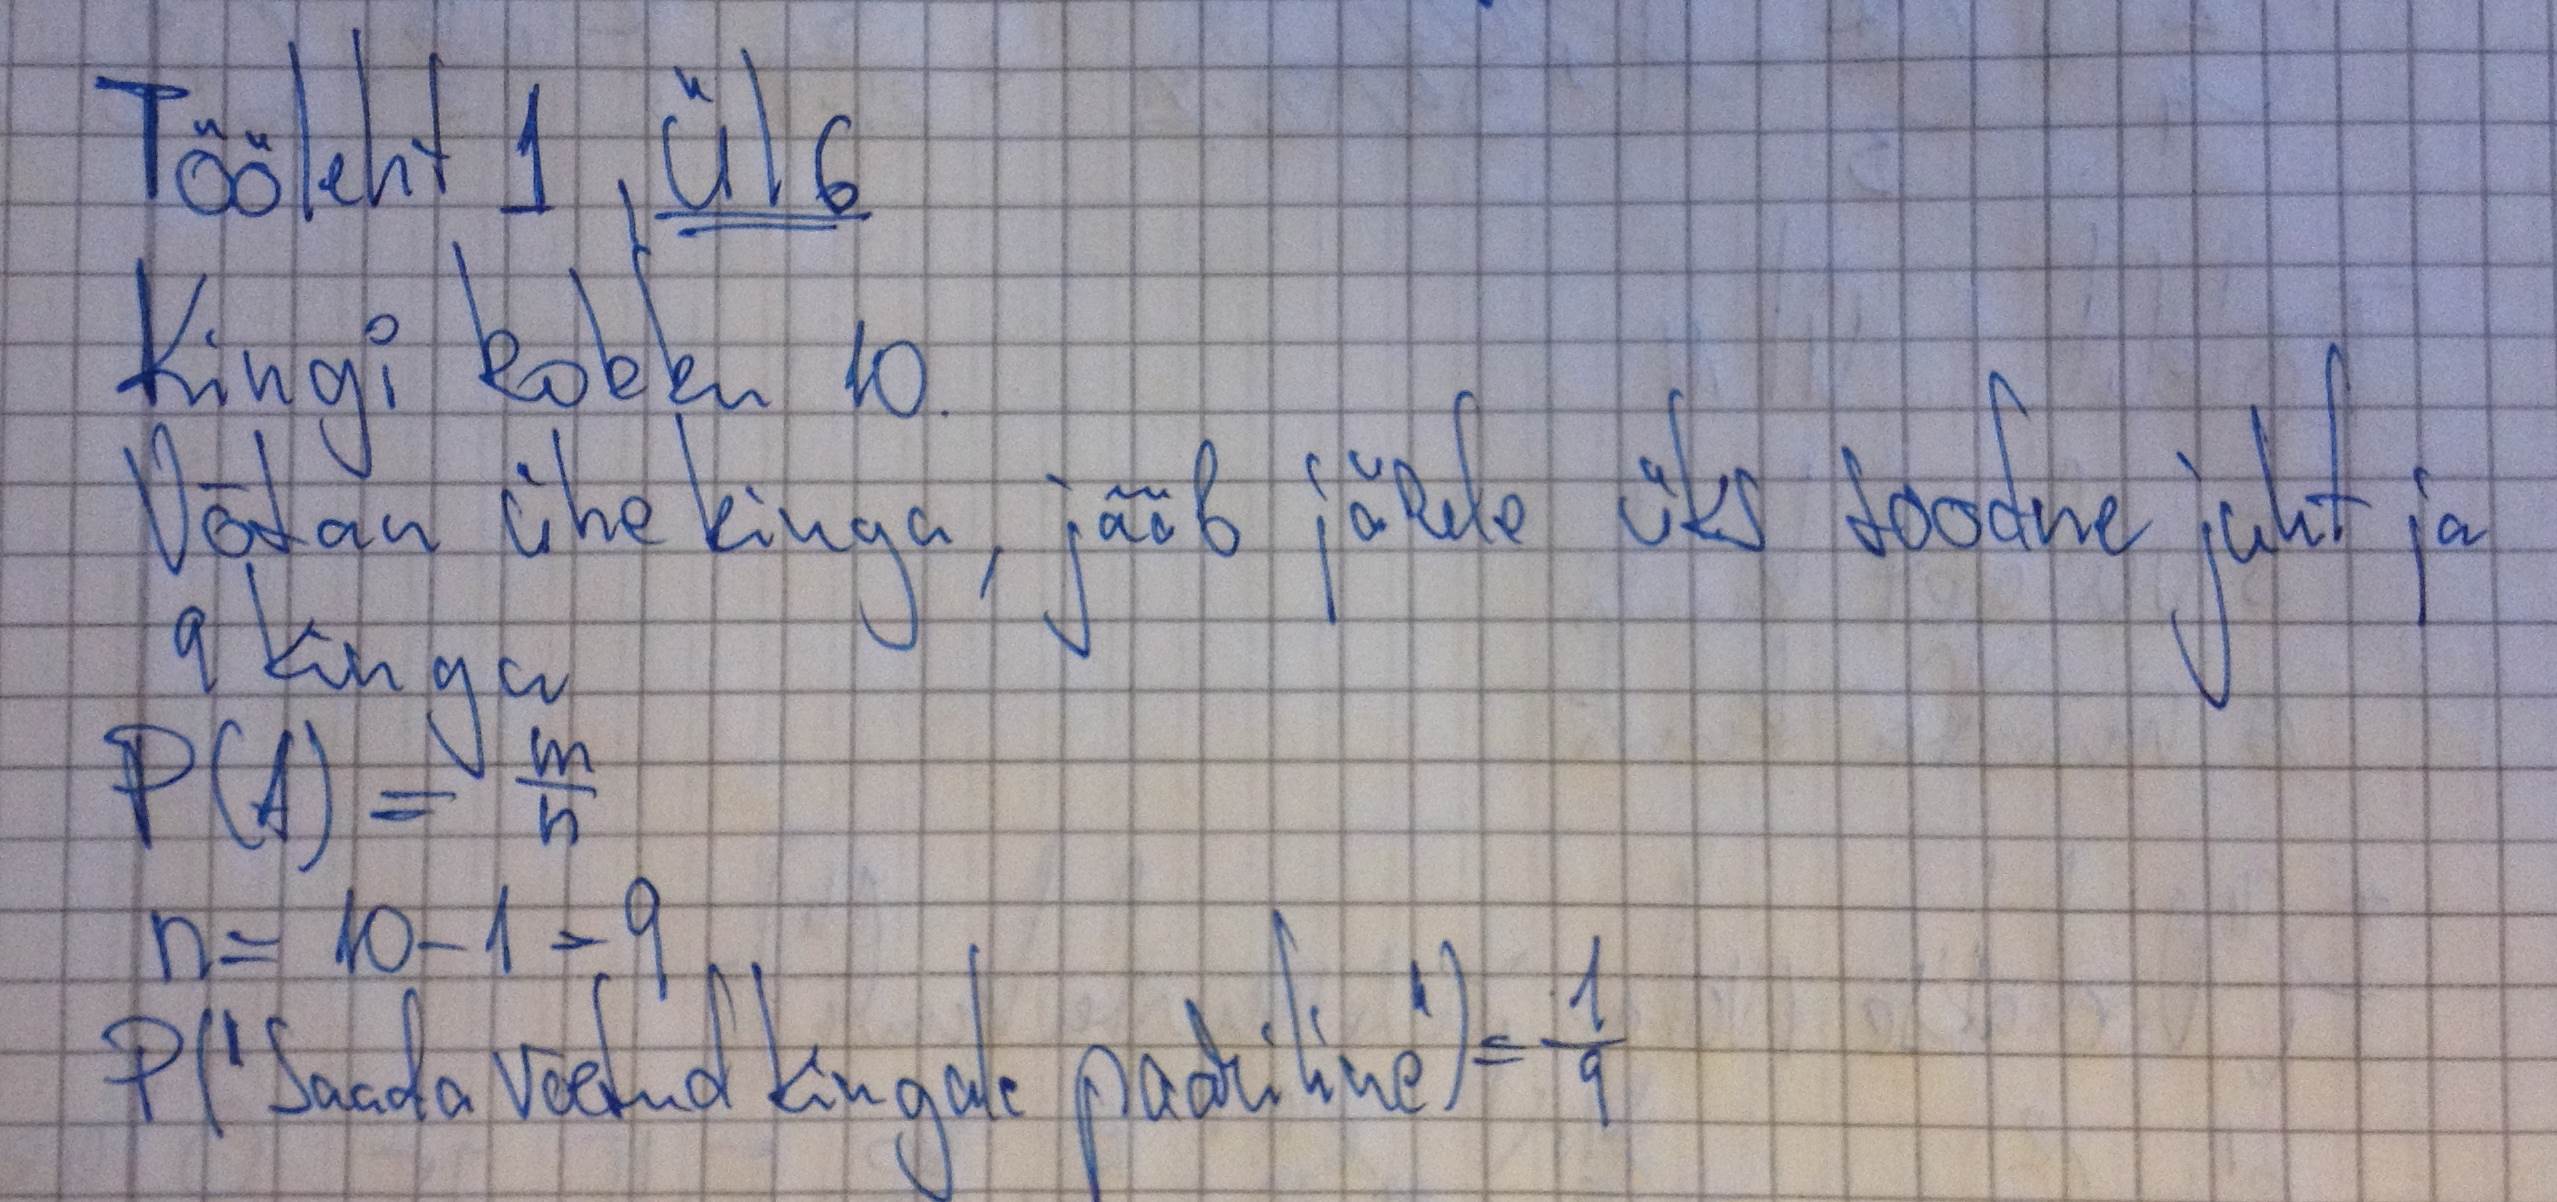 Tööleht 1, ül 6
Kingi kokku 10.
Võtan ühe kinga, jääb järele üks soodne juht ja
9 kinga
P(A) = m/n
n = 10 - 1 = 9
P("Saada võetud kingale paariline") = 1/9